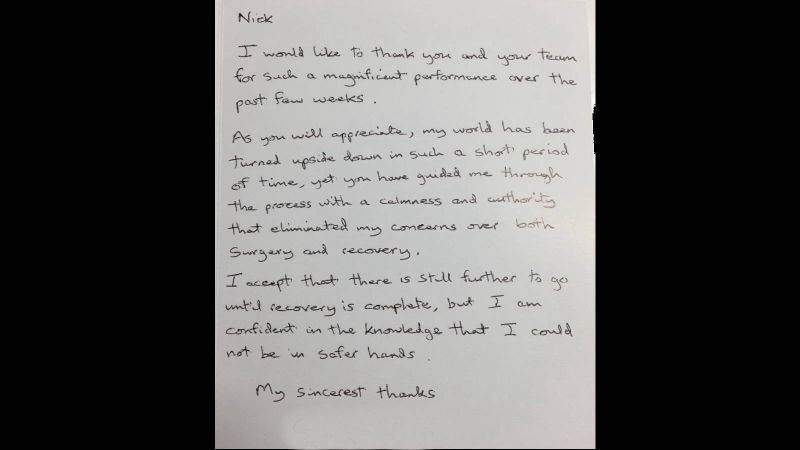 Nick
I would like to thank you and your team
for such a magnificent performance over the
past few weeks.
As you will appreciate, my world has been
turned upside down in such a short period
of time, yet you have guided me through
the process with a calmness and authority
that eliminated my concerns over both
surgery and recovery.
I accept that there is still further to go
until recovery is complete, but I am
confident in the knowledge that I could
not be in safer hands.
My sincerest thanks